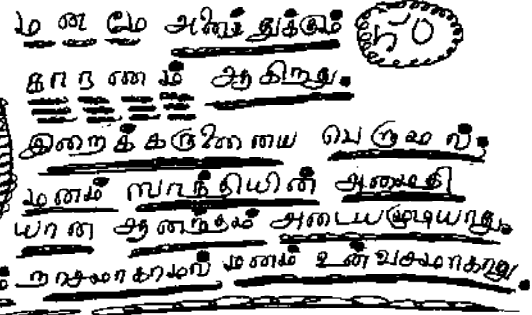 மனமே அனைத்துக்கும்
காரணம் ஆகிறது.
இறைக் கருணையை பெருமல்.
மனம் ஸாந்தியின் அமைதி
யான ஆனந்தம் அடையமுடியாது.
நாசமாகாமல் மனம் உன் வசமாகாது.